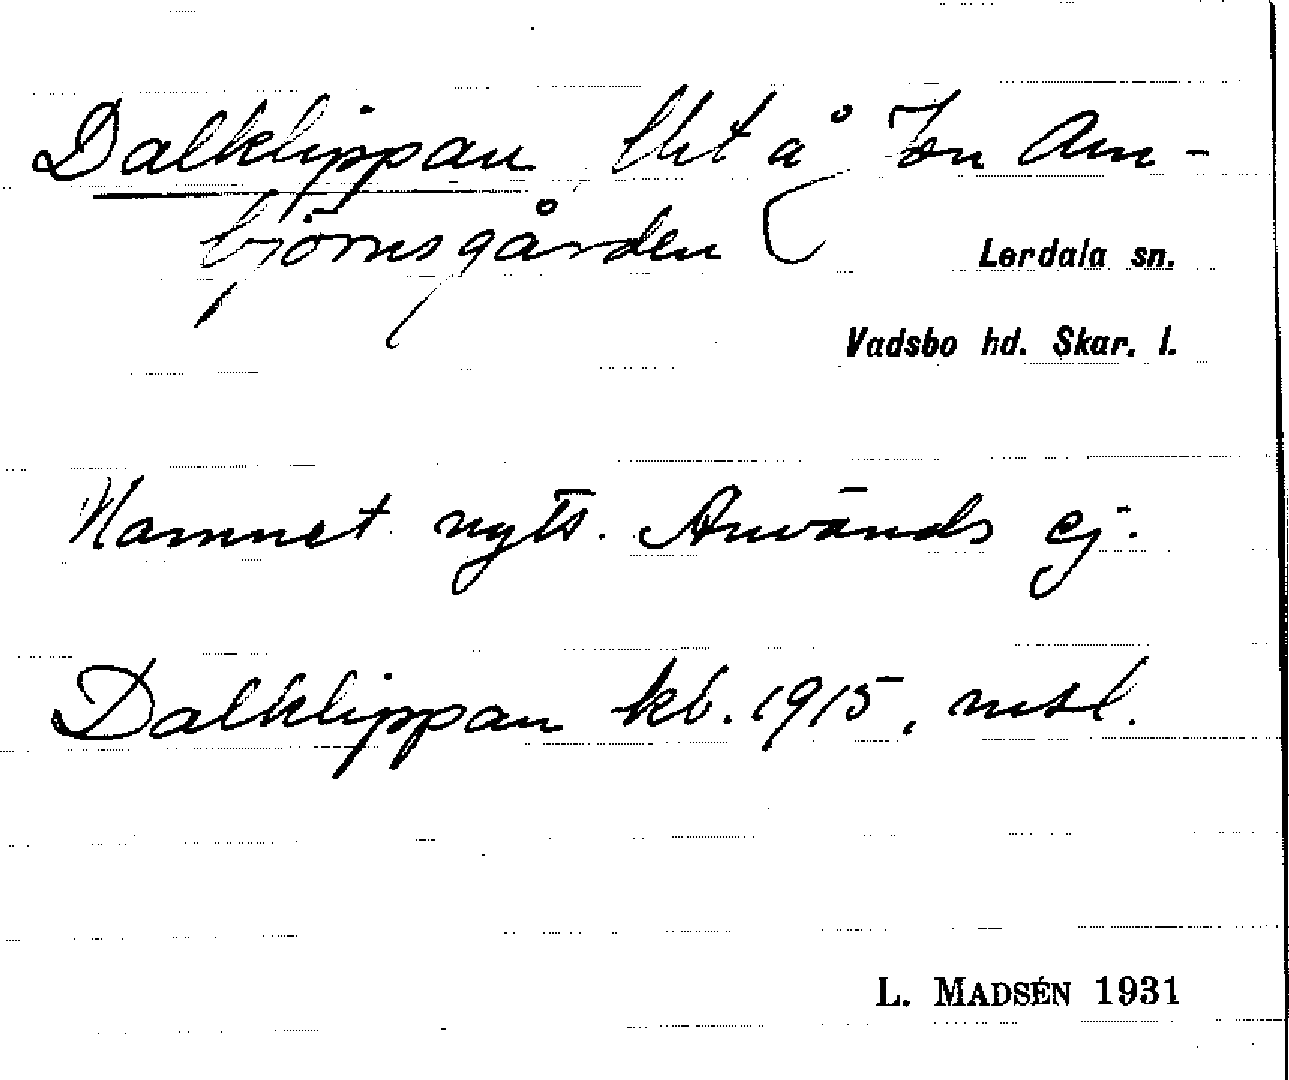 Dalklippan lht å Jon Arn-
björnsgården
Lerdala sn.
Vadsbo hd. Skar. l.
Namnet nytt. Används ej.
Dalklippan kb. 1915, mtl.
L. MADSÉN 1931